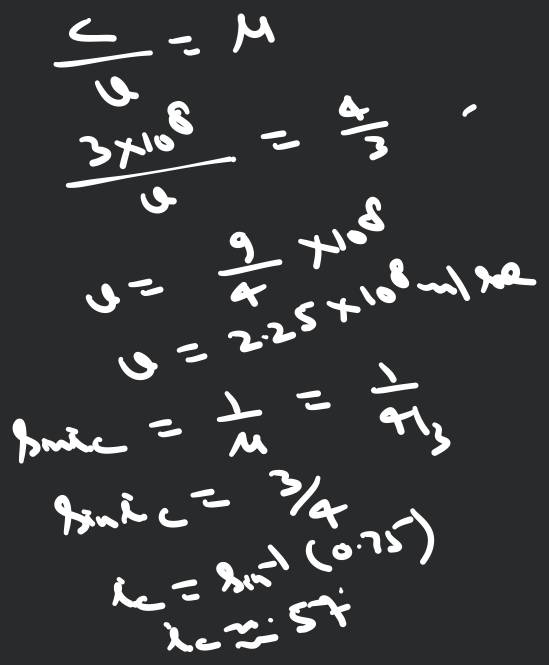 c/v = μ
3×10⁸/v = 4/3
v = 9/4 ×10⁸
v = 2.25×10⁸ m/sec
sin ic = 1/μ = 1/4/3
sin ic = 3/4
ic = sin⁻¹ (0.75)
ic ≈ 57°